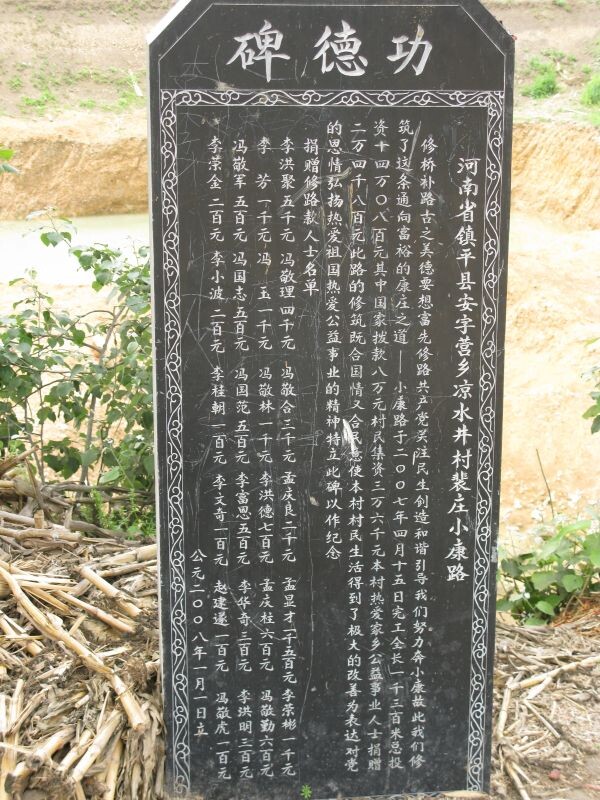 功德碑
河南省镇平县安字营乡凉水井村裴庄小康路
修桥补路古之美德要想富先修路共产党关注民生创造和谐引导我们努力奔小康故此我们修
筑了这条通向富裕的康庄之道——小康路于二〇〇七年四月十五日完工全长一千三百米总投
资十四万〇八百元其中国家拨款八万元村民集资三万六千元本村热爱家乡公益事业人士捐赠
二万四千八百元此路的修筑既合国情又合民意使本村村民生活得到了极大的改善为表达对党
的恩情弘扬热爱祖国热爱公益事业的精神特立此碑以作纪念
捐赠修路款人士名单
李洪聚五千元 冯敬理四千元 冯敬合三千元 孟庆良二千元 孟显才一千五百元 李荣彬一千元
李芳一千元 冯玉一千元 冯敬林一千元 李洪德七百元 孟庆柱六百元 冯敬勤六百元
冯敬军五百元 冯国志五百元 冯国范五百元 李富恩五百元 李华奇三百元 李洪明三百元
李荣金二百元 李小波二百元 李桂朝一百元 李文奇一百元 赵建遂一百元 冯敬虎一百元
公元二〇〇八年一月一日立